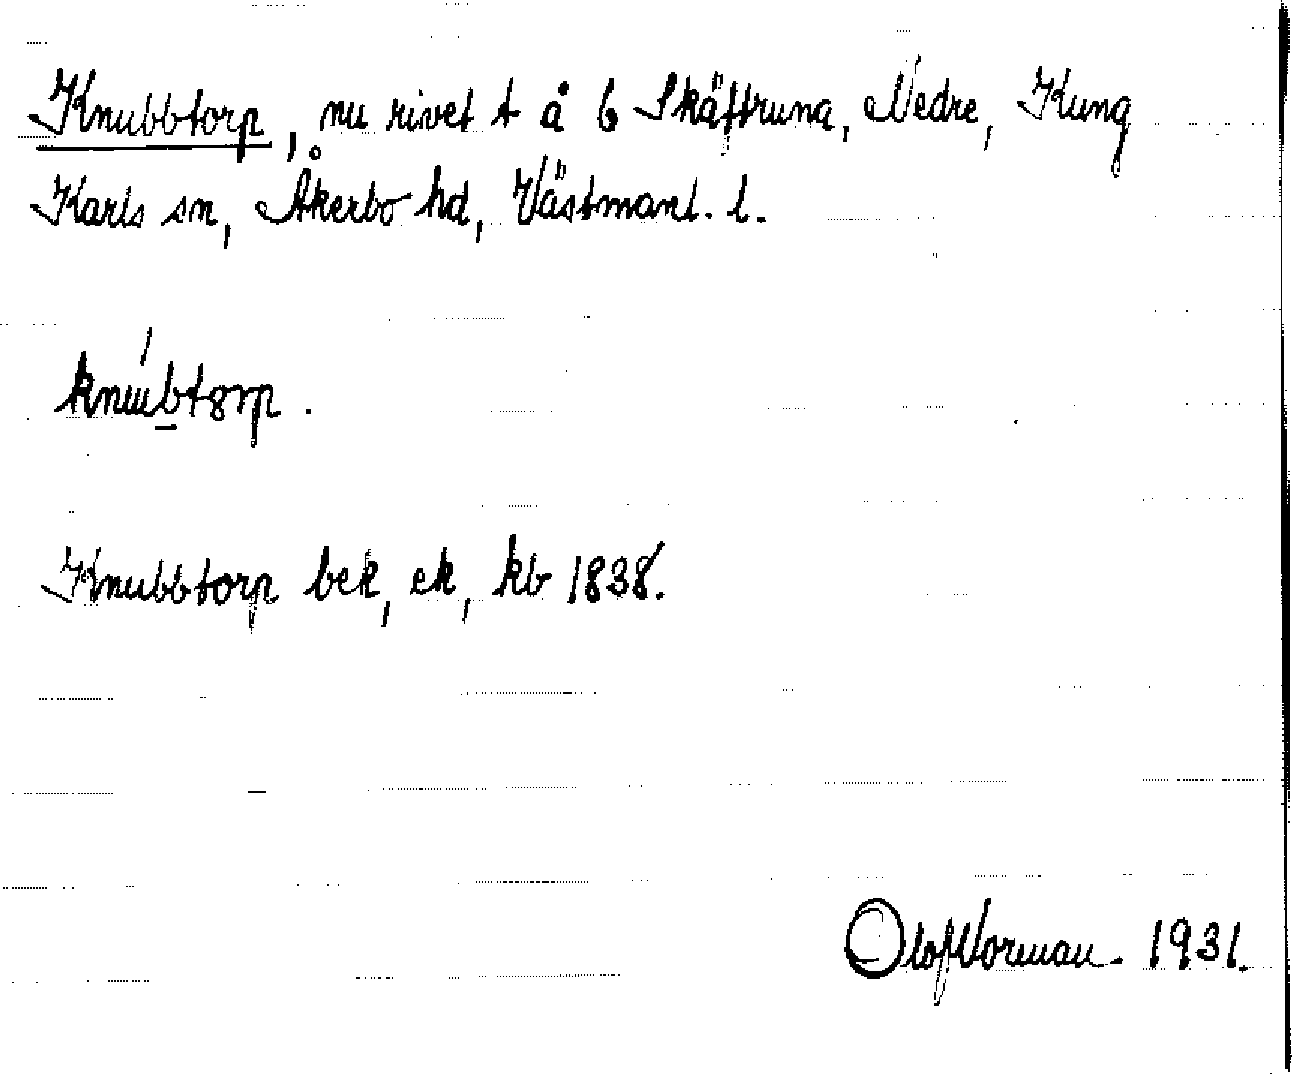 Knubbtorp, nu rivet t å b Skäftruna, Nedre, Kung
Karls sn, Åkerbo hd, Västmanl. l.
Knubbtorp bek, ek, kb 1838.
Olof Norman. 1931.